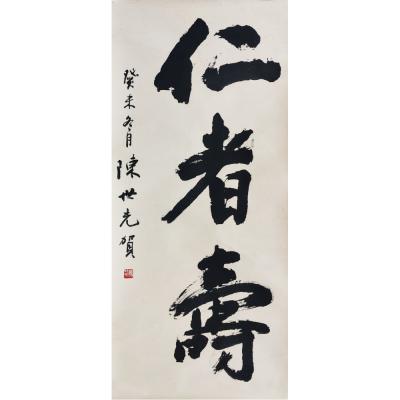 仁者壽
癸未冬月陳世光賀